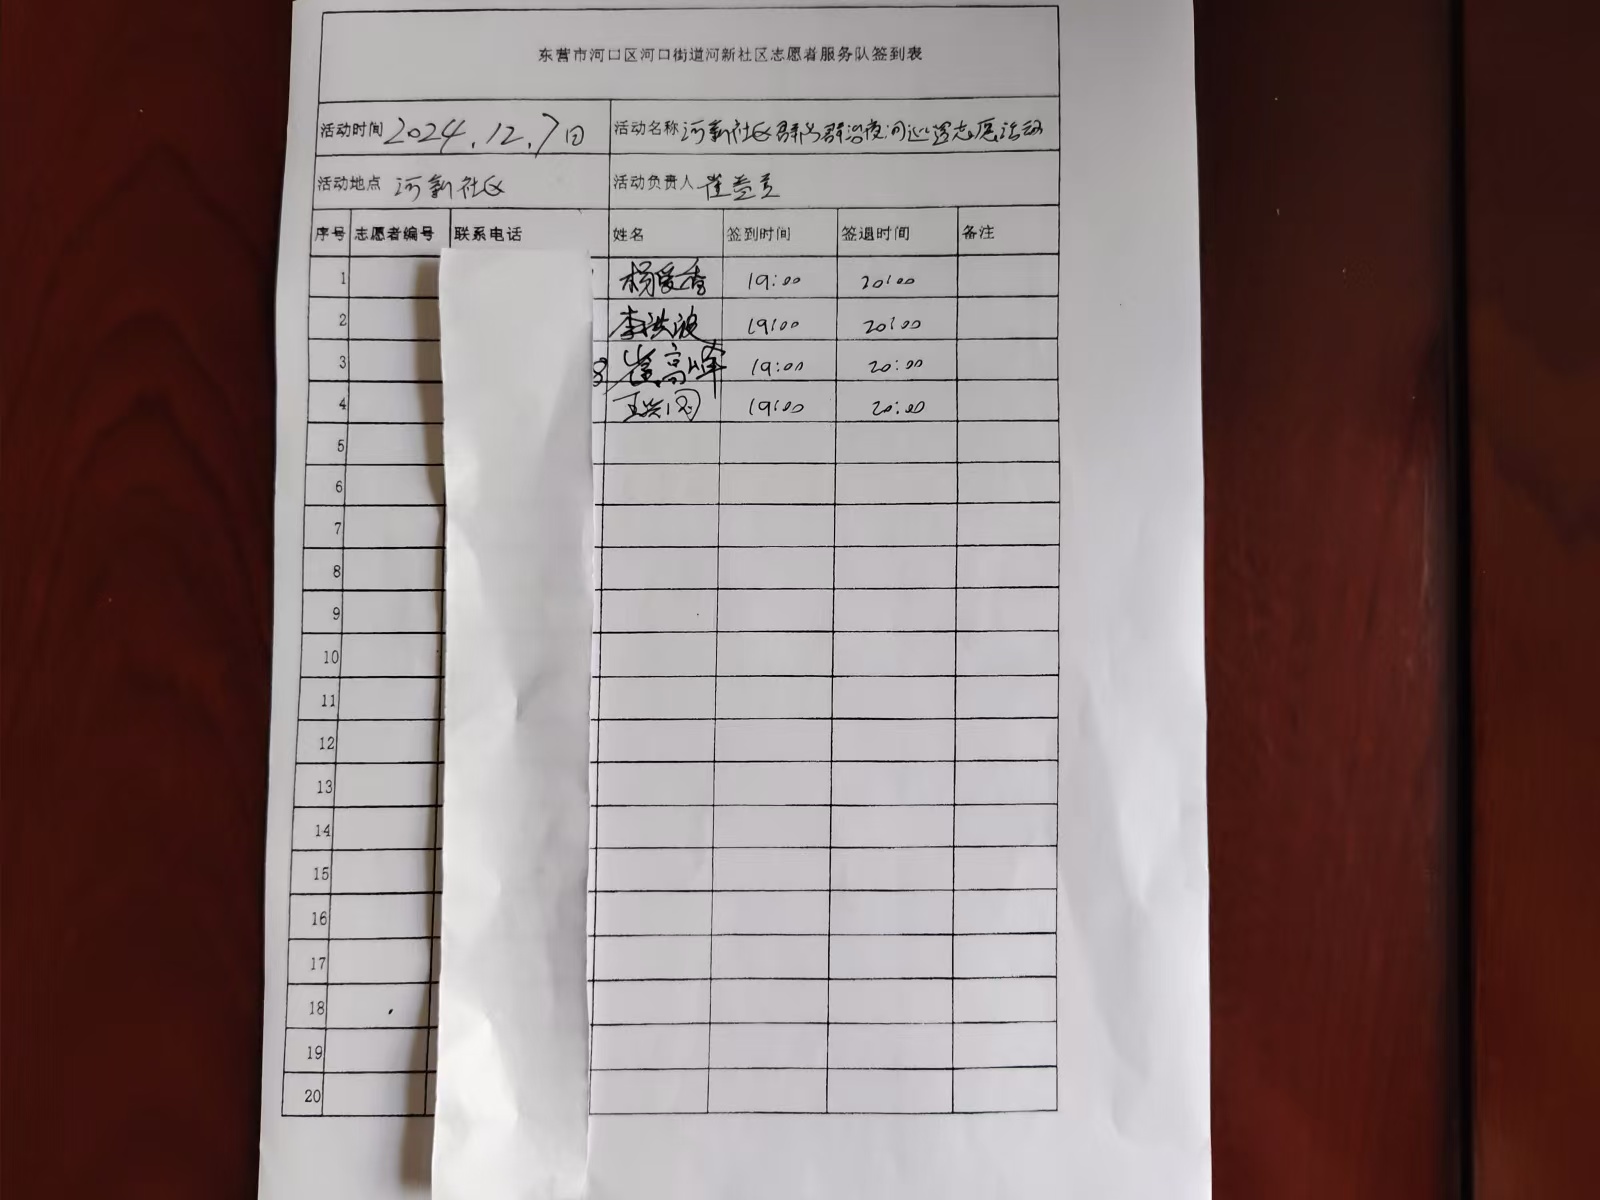 东营市河口区河口街道河新社区志愿者服务队签到表
活动时间 2024.12.7日 活动名称 河新社区群防群治夜间巡逻志愿活动
活动地点 河新社区 活动负责人 崔
序号 志愿者编号 联系电话 姓名 签到时间 签退时间 备注
1 杨爱香 19:00 20:00
2 李洪波 19:00 20:00
3 崔高峰 19:00 20:00
4 王 19:00 20:00
5
6
7
8
9
10
11
12
13
14
15
16
17
18
19
20